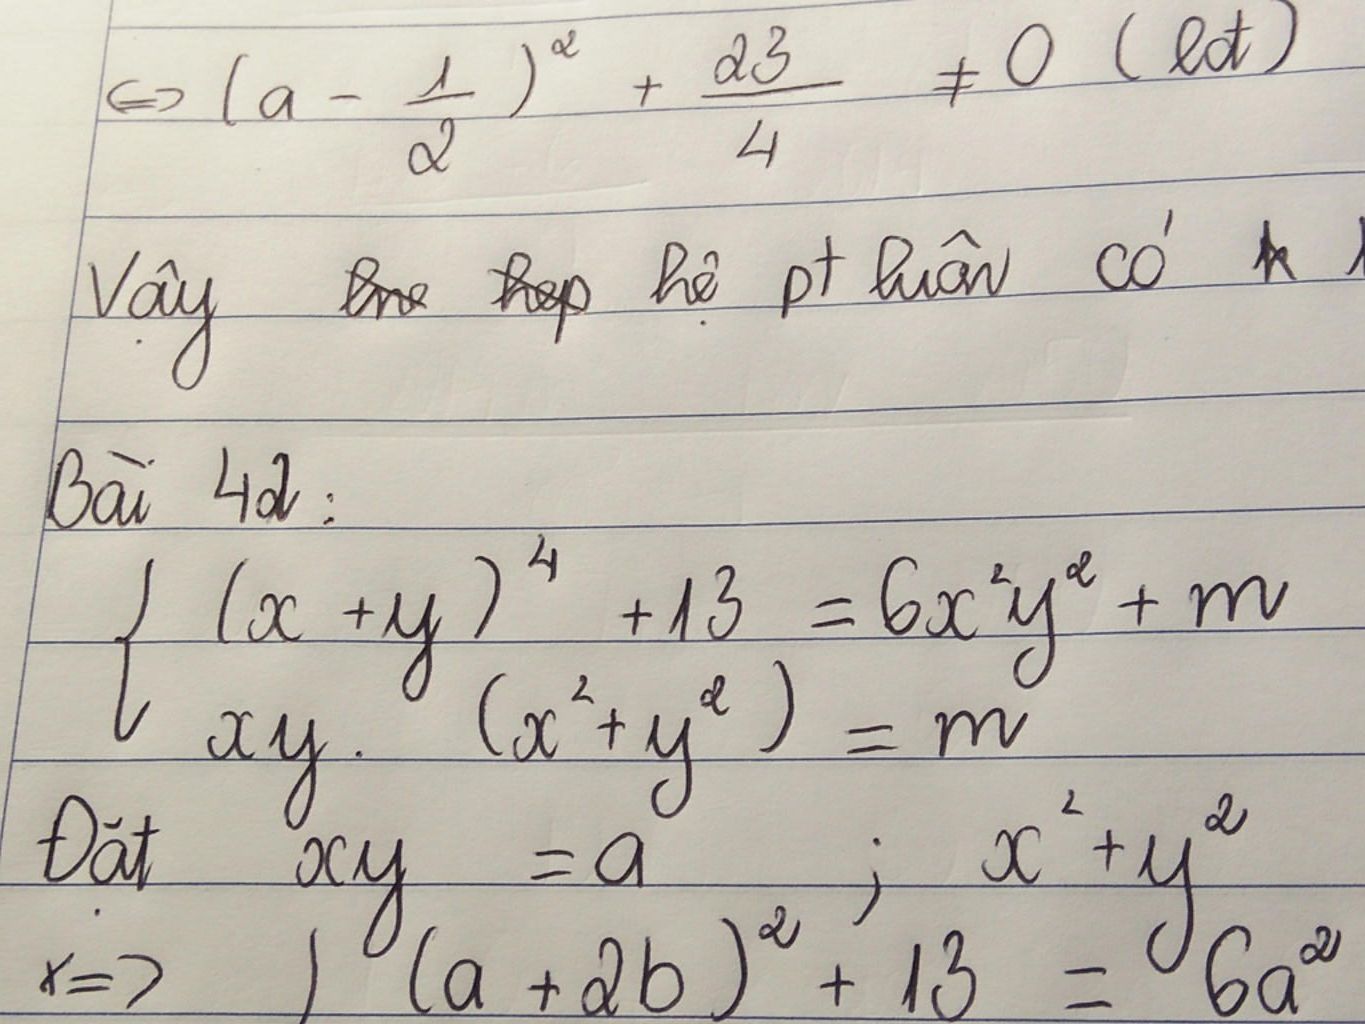 <=> (a - 1/2)² + 23/4 ≠ 0 (lđ)
Vậy hệ pt luôn có
Bài 42:
{ (x + y)⁴ + 13 = 6x²y² + m
xy. (x² + y²) = m
Đặt xy = a ; x² + y²
=> { (a + 2b)² + 13 = 6a²